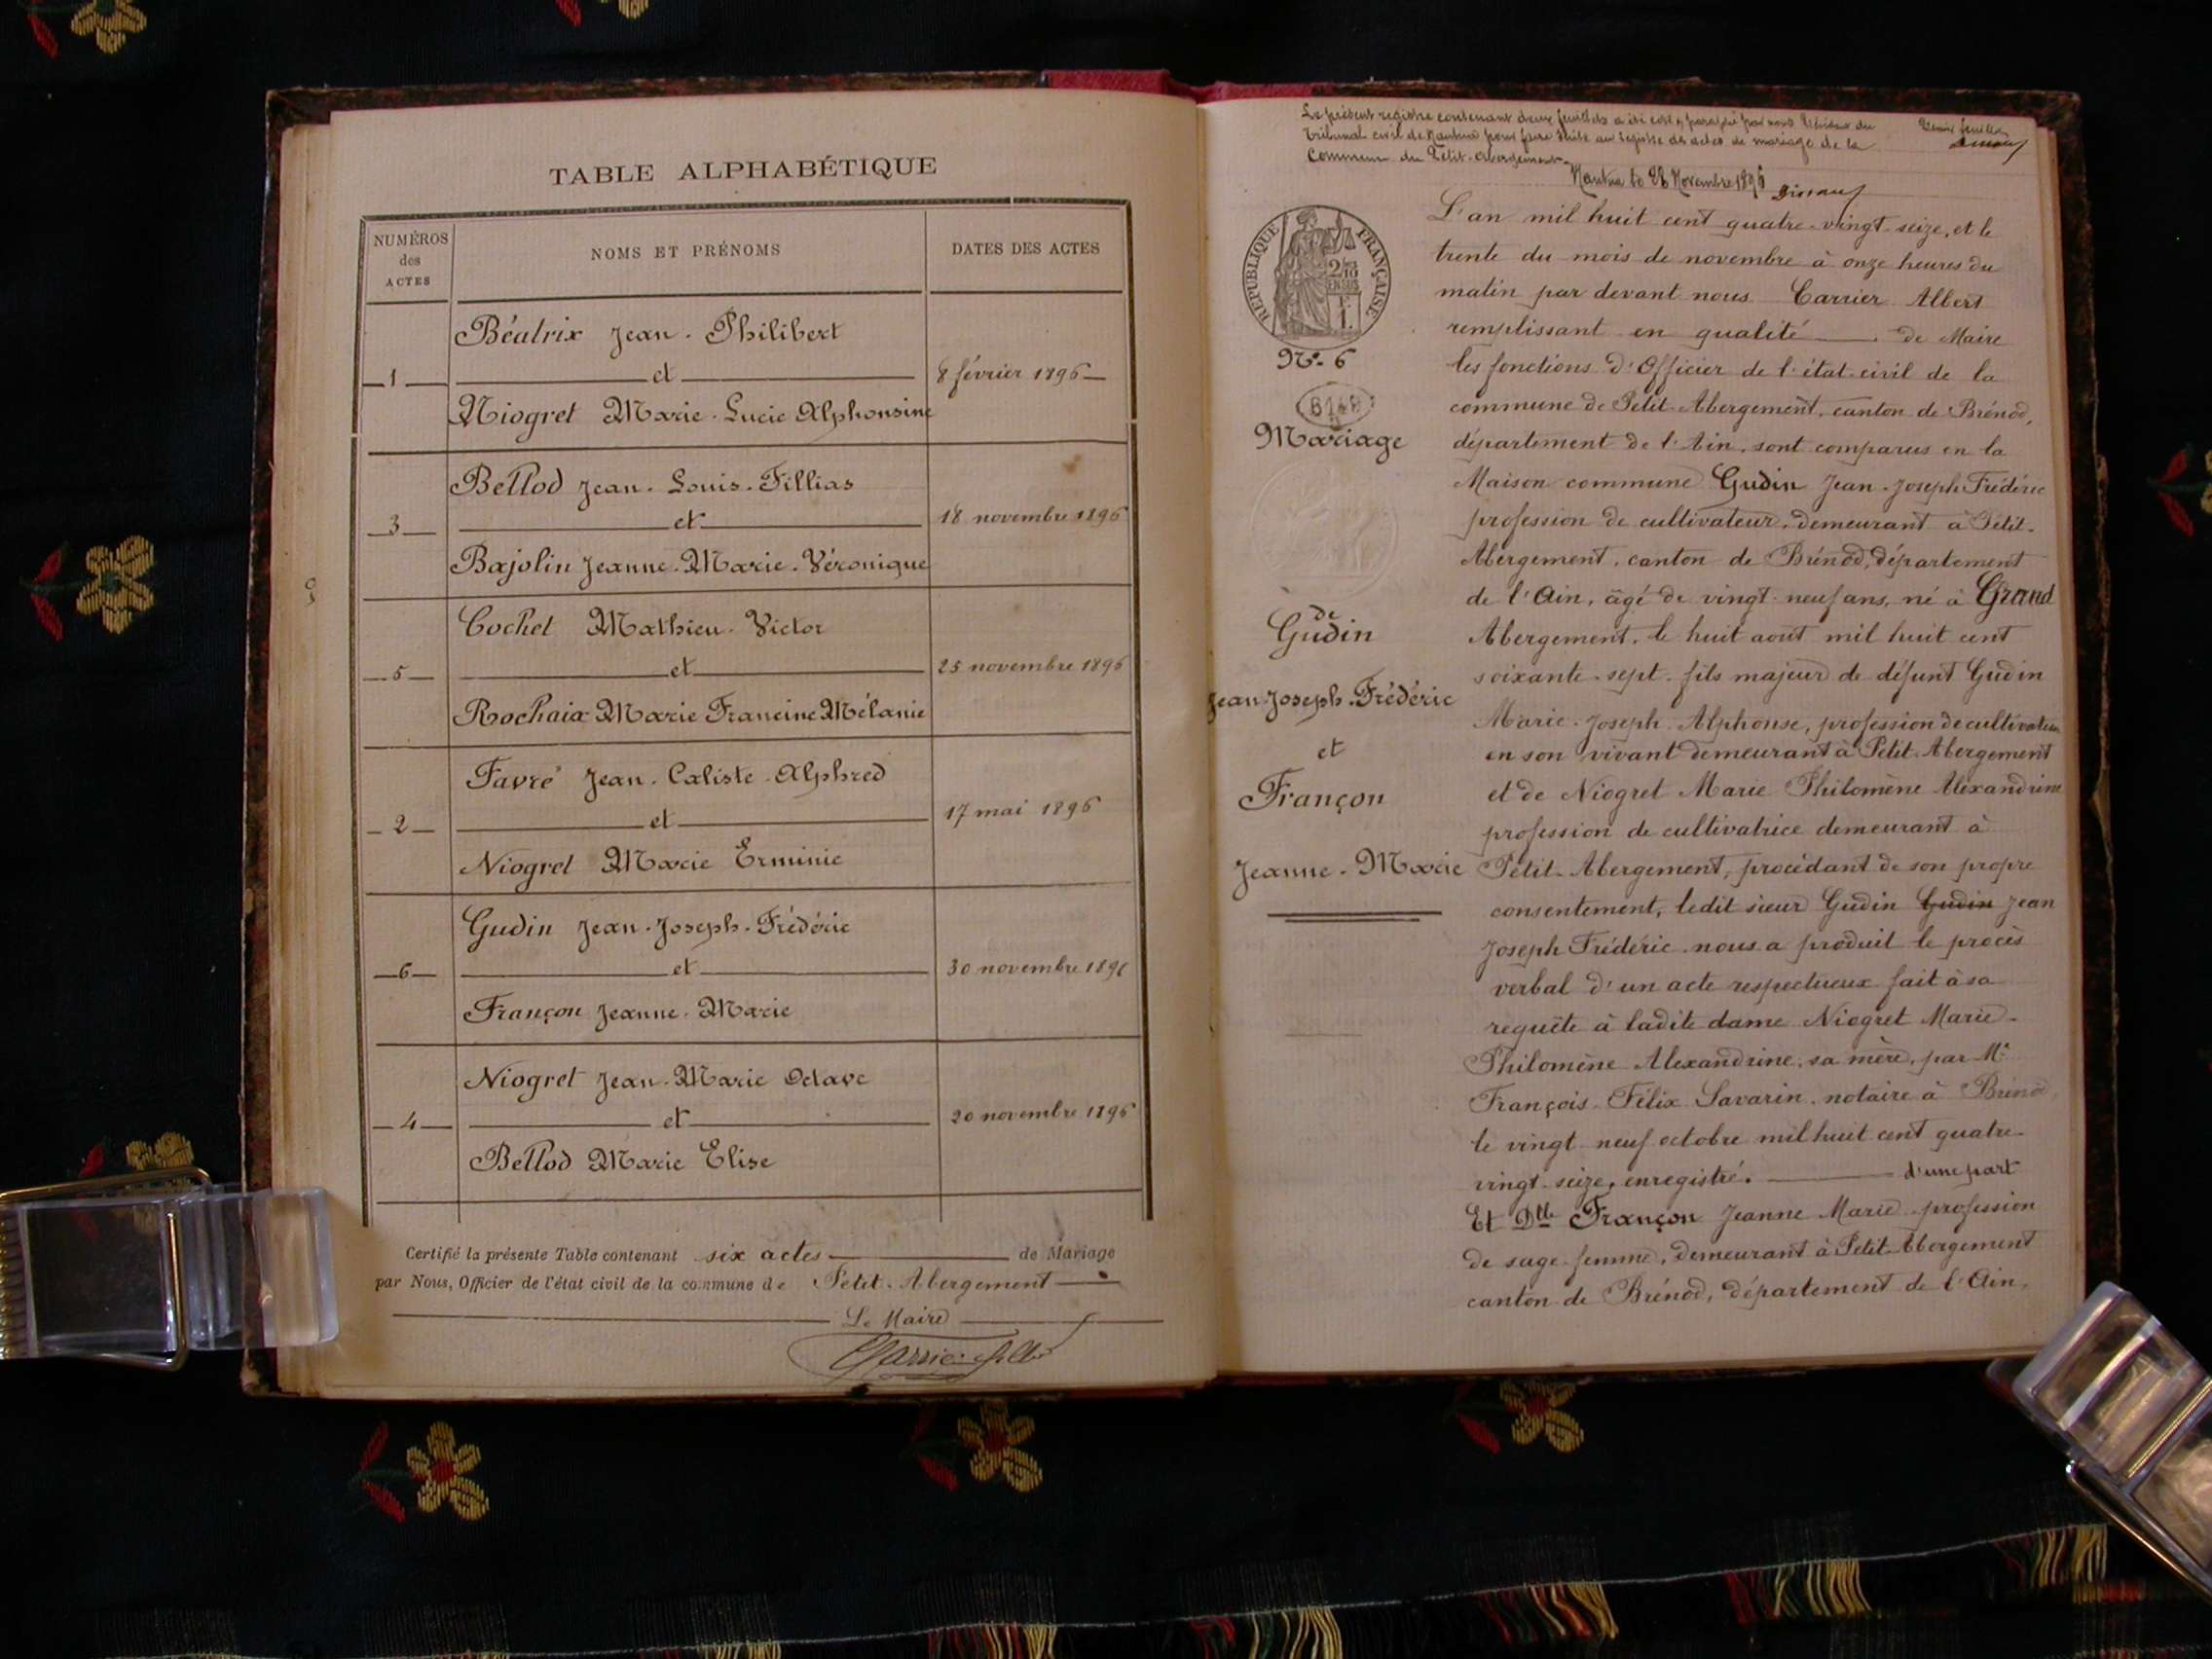 TABLE ALPHABÉTIQUE
NUMÉROS
des
ACTES
NOMS ET PRÉNOMS
DATES DES ACTES
Béatrix Jean-Philibert
1 et 8 février 1896
Niogret Marie-Lucie Alphonsine
Bellod Jean-Louis-Fillias
3 et 18 novembre 1896
Bajolin Jeanne-Marie-Véronique
Cochet Mathieu-Victor
5 et 25 novembre 1896
Rochaix Marie Francine Mélanie
Favre Jean-Caliste-Alphred
2 et 17 mai 1896
Niogret Marie Erminie
Gudin Jean-Joseph-Frédéric
6 et 30 novembre 1896
Françon Jeanne-Marie
Niogret Jean-Marie Octave
4 et 20 novembre 1896
Bellod Marie Elise
Certifié la présente Table contenant six actes de Mariage
par Nous, Officier de l'état civil de la commune de Petit-Abergement
Le Maire
Le présent registre contenant deux feuillets a été coté & paraphé par nous Président du
Tribunal civil de Nantua pour faire suite au registre des actes de mariage de la
Commune du Petit-Abergement
Nantua le 28 Novembre 1896
RÉPUBLIQUE FRANÇAISE
2/10
EN SUS
1 F.
N°- 6
Mariage
de
Gudin
Jean-Joseph-Frédéric
et
Françon
Jeanne-Marie
L'an mil huit cent quatre-vingt-seize, et le
trente du mois de novembre à onze heures du
matin par devant nous Carrier Albert
remplissant en qualité de Maire
les fonctions d'Officier de l'état-civil de la
commune de Petit-Abergement, canton de Brénod,
département de l'Ain, sont comparus en la
Maison commune Gudin Jean-Joseph Frédéric
profession de cultivateur, demeurant à Petit-
Abergement, canton de Brénod, département
de l'Ain, âgé de vingt-neuf ans, né à Grand
Abergement, le huit août mil huit cent
soixante-sept, fils majeur de défunt Gudin
Marie-Joseph Alphonse, profession de cultivateur
en son vivant demeurant à Petit-Abergement
et de Niogret Marie Philomène Alexandrine
profession de cultivatrice demeurant à
Petit-Abergement, procédant de son propre
consentement, ledit sieur Gudin Gudin Jean
Joseph Frédéric nous a produit le procès
verbal d'un acte respectueux fait à sa
requête à ladite dame Niogret Marie-
Philomène Alexandrine, sa mère, par Me
François-Félix Savarin, notaire à Brénod,
le vingt-neuf octobre mil huit cent quatre-
vingt-seize, enregistré. d'une part
Et Dlle Françon Jeanne Marie profession
de sage-femme, demeurant à Petit-Abergement
canton de Brénod, département de l'Ain,